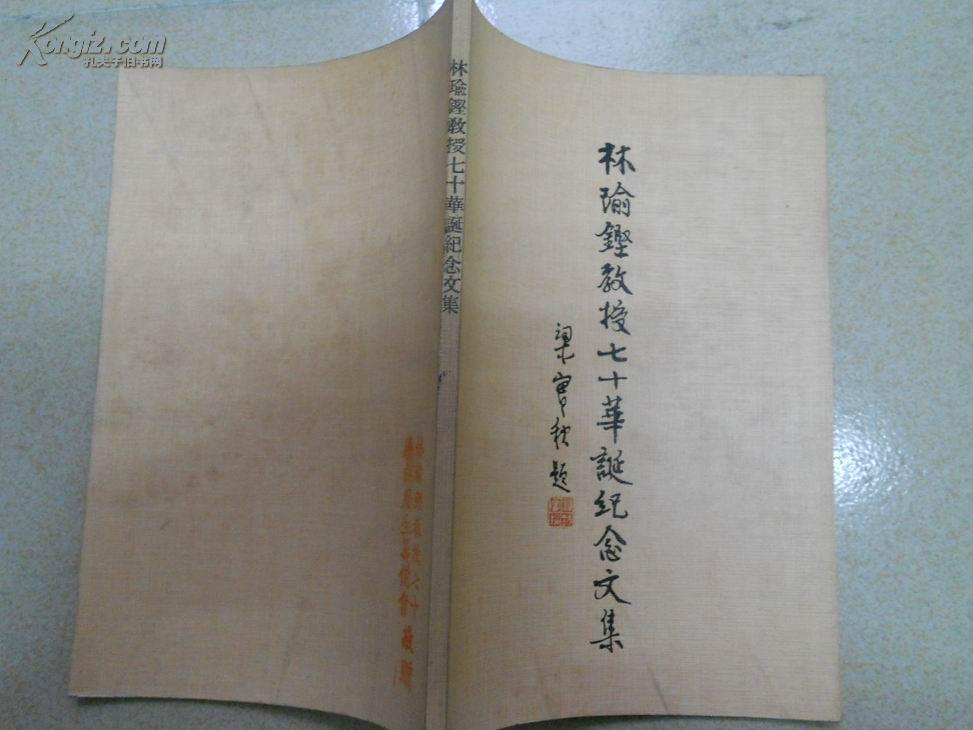 Kongfz.com
孔夫子旧书网
林瑜鏗教授七十華誕紀念文集
林瑜鏗教授七十華誕紀念文集
梁實秋題